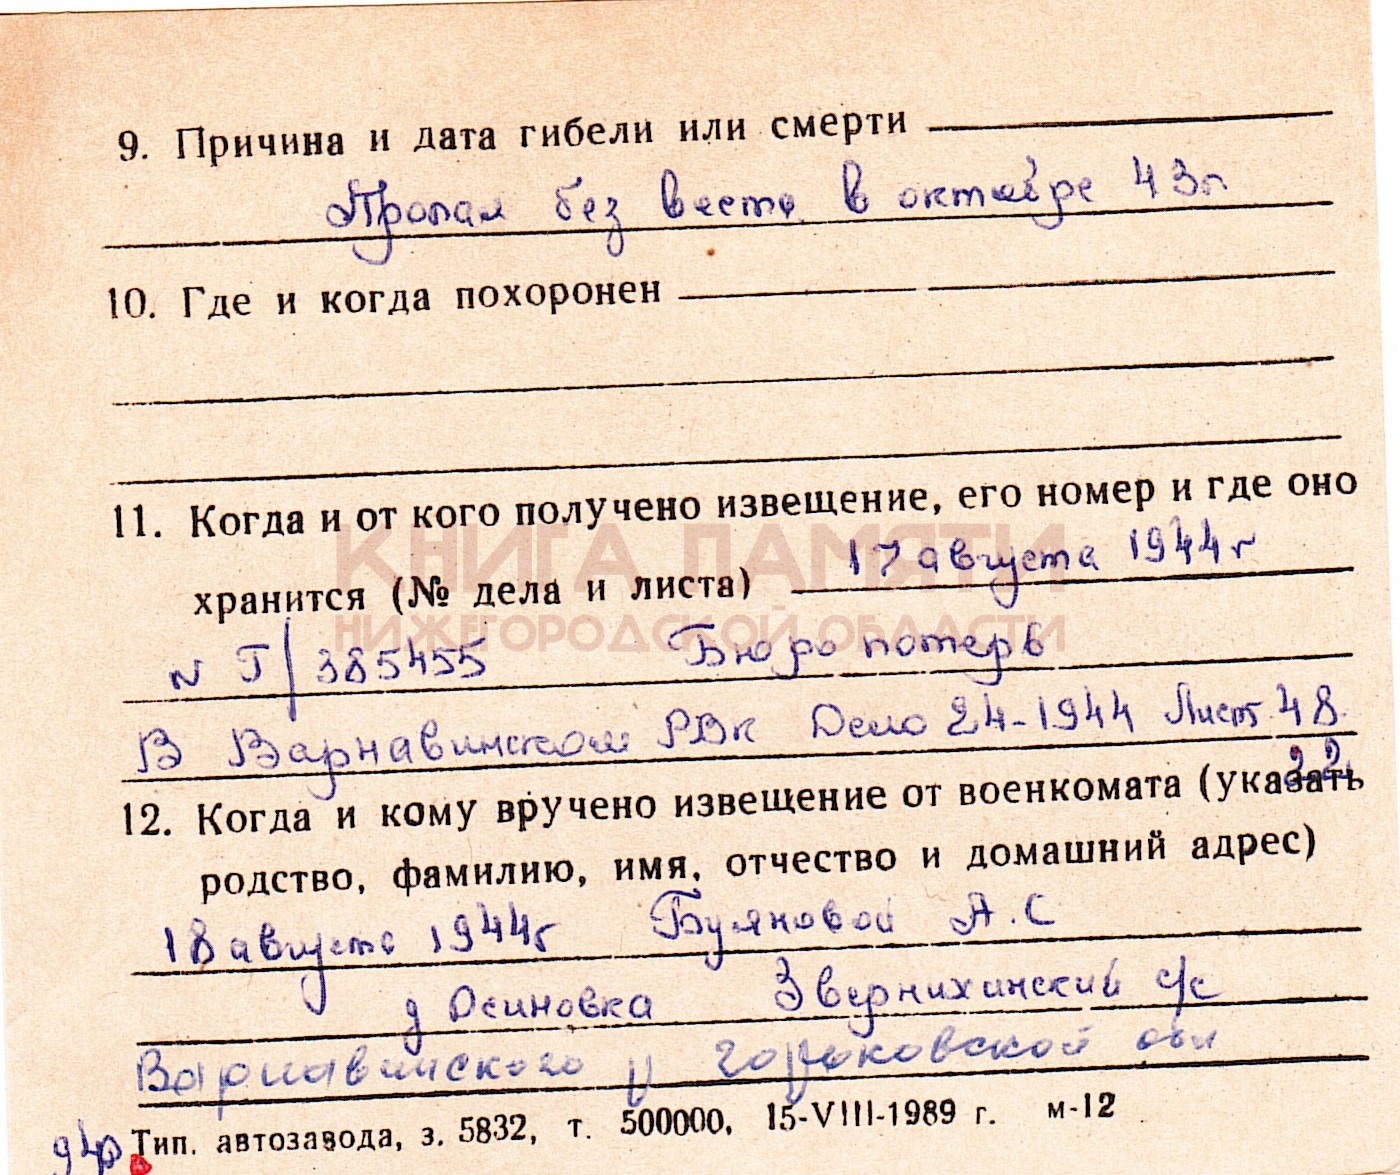 9. Причина и дата гибели или смерти
Пропал без вести в октябре 43г
10. Где и когда похоронен
11. Когда и от кого получено извещение, его номер и где оно
хранится (№ дела и листа) 17 августа 1944г
КНИГА ПАМЯТИ
НИЖЕГОРОДСКОЙ ОБЛАСТИ
N П/385455 Бюро потерь
В Варнавинском РВК Дело 24-1944 Лист 48
22
12. Когда и кому вручено извещение от военкомата (указать
родство, фамилию, имя, отчество и домашний адрес)
18 августа 1944г Буяновой А. С
д Осиновка Звернихинский с/с
Варнавинского р Горьковской обл
Тип. автозавода, з. 5832, т. 500000, 15-VIII-1989 г. м-12